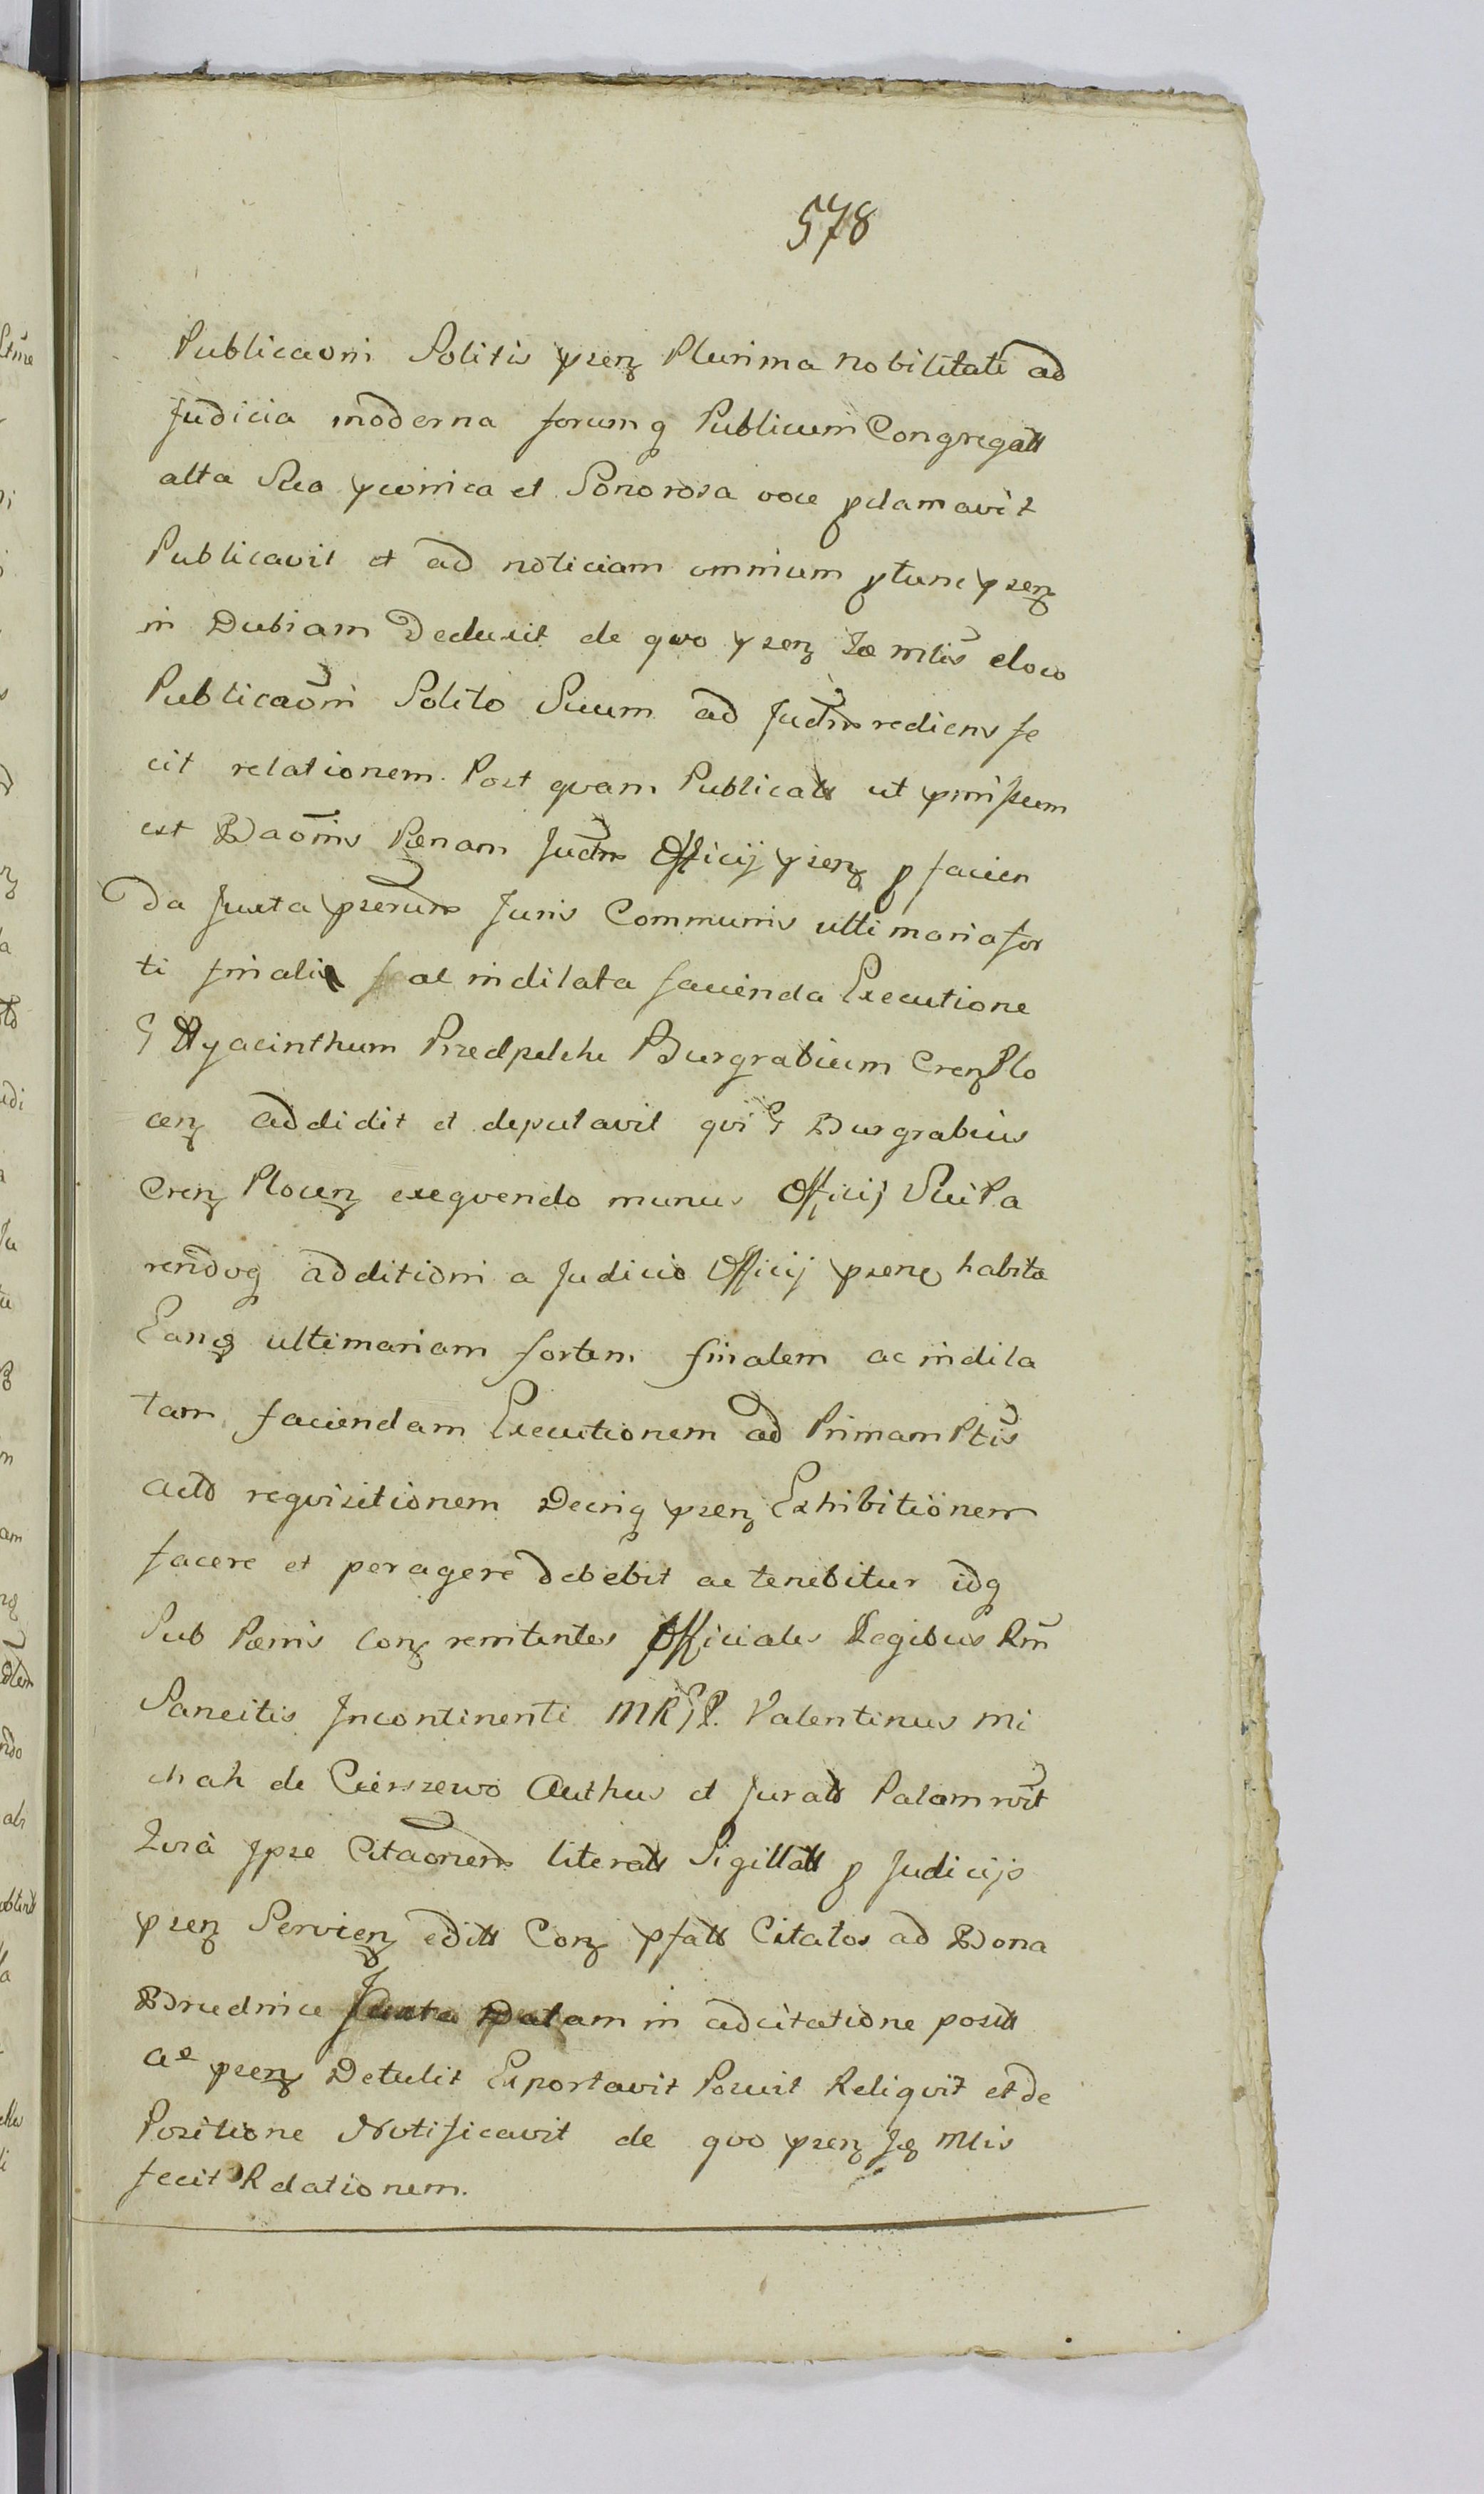 578
Publicaoni Solitis psenz Plurima nobilitate ad
Judicia moderna forumq Publicum Congregatt
alta Sua et Sonorosa voce pclamavit
Publicavit et ad noticiam omnium ptunc psenz
in Dubiam Deduxit de quo psenz Jo mlis eloco
Publicaoni Solito Suum ad Judm rediens fe
cit relationem. Post quam Publicatt ut pmissum
est Baonis Pœnam Judm Officij psenz p facien
da Juxta pserum Juris Communis ultimaria for
ti finali ac indilata facienda Executione
G Hyacinthum Przedpelski Burgrabium Crenz Plo
cenz addidit et deputavit qui G Burgrabius
Crenz Plocenz exequendo munus Officij Sui Pa
rendoq additioni a Judicio Officij psenz habita
Eanq ultimariam fortem finalem ac indila
tam faciendam Executionem ad Primam Ptis
actto requisitionem Decriq psenz Exhibitionem
facere et peragere debebit ac tenebitur idq
Sub Pœnis conz renitentes Officiales Legibus Rni
Sancitis Incontinenti MRGP. Valentinus Mi
chah de Cierszewo Authus et Juratt Palam
Ipse Citaonem literatt Sigillatt p Judicijs
psenz Servienz editt Conz pfatt Citatos ad Bona
Brudnice Juxta Datam in adcitatione positt
Ao psenz Detulit Exportavit Posuit Reliquit et de
Positione Notificavit de quo psenz Jq Mlis
fecit Relationem.